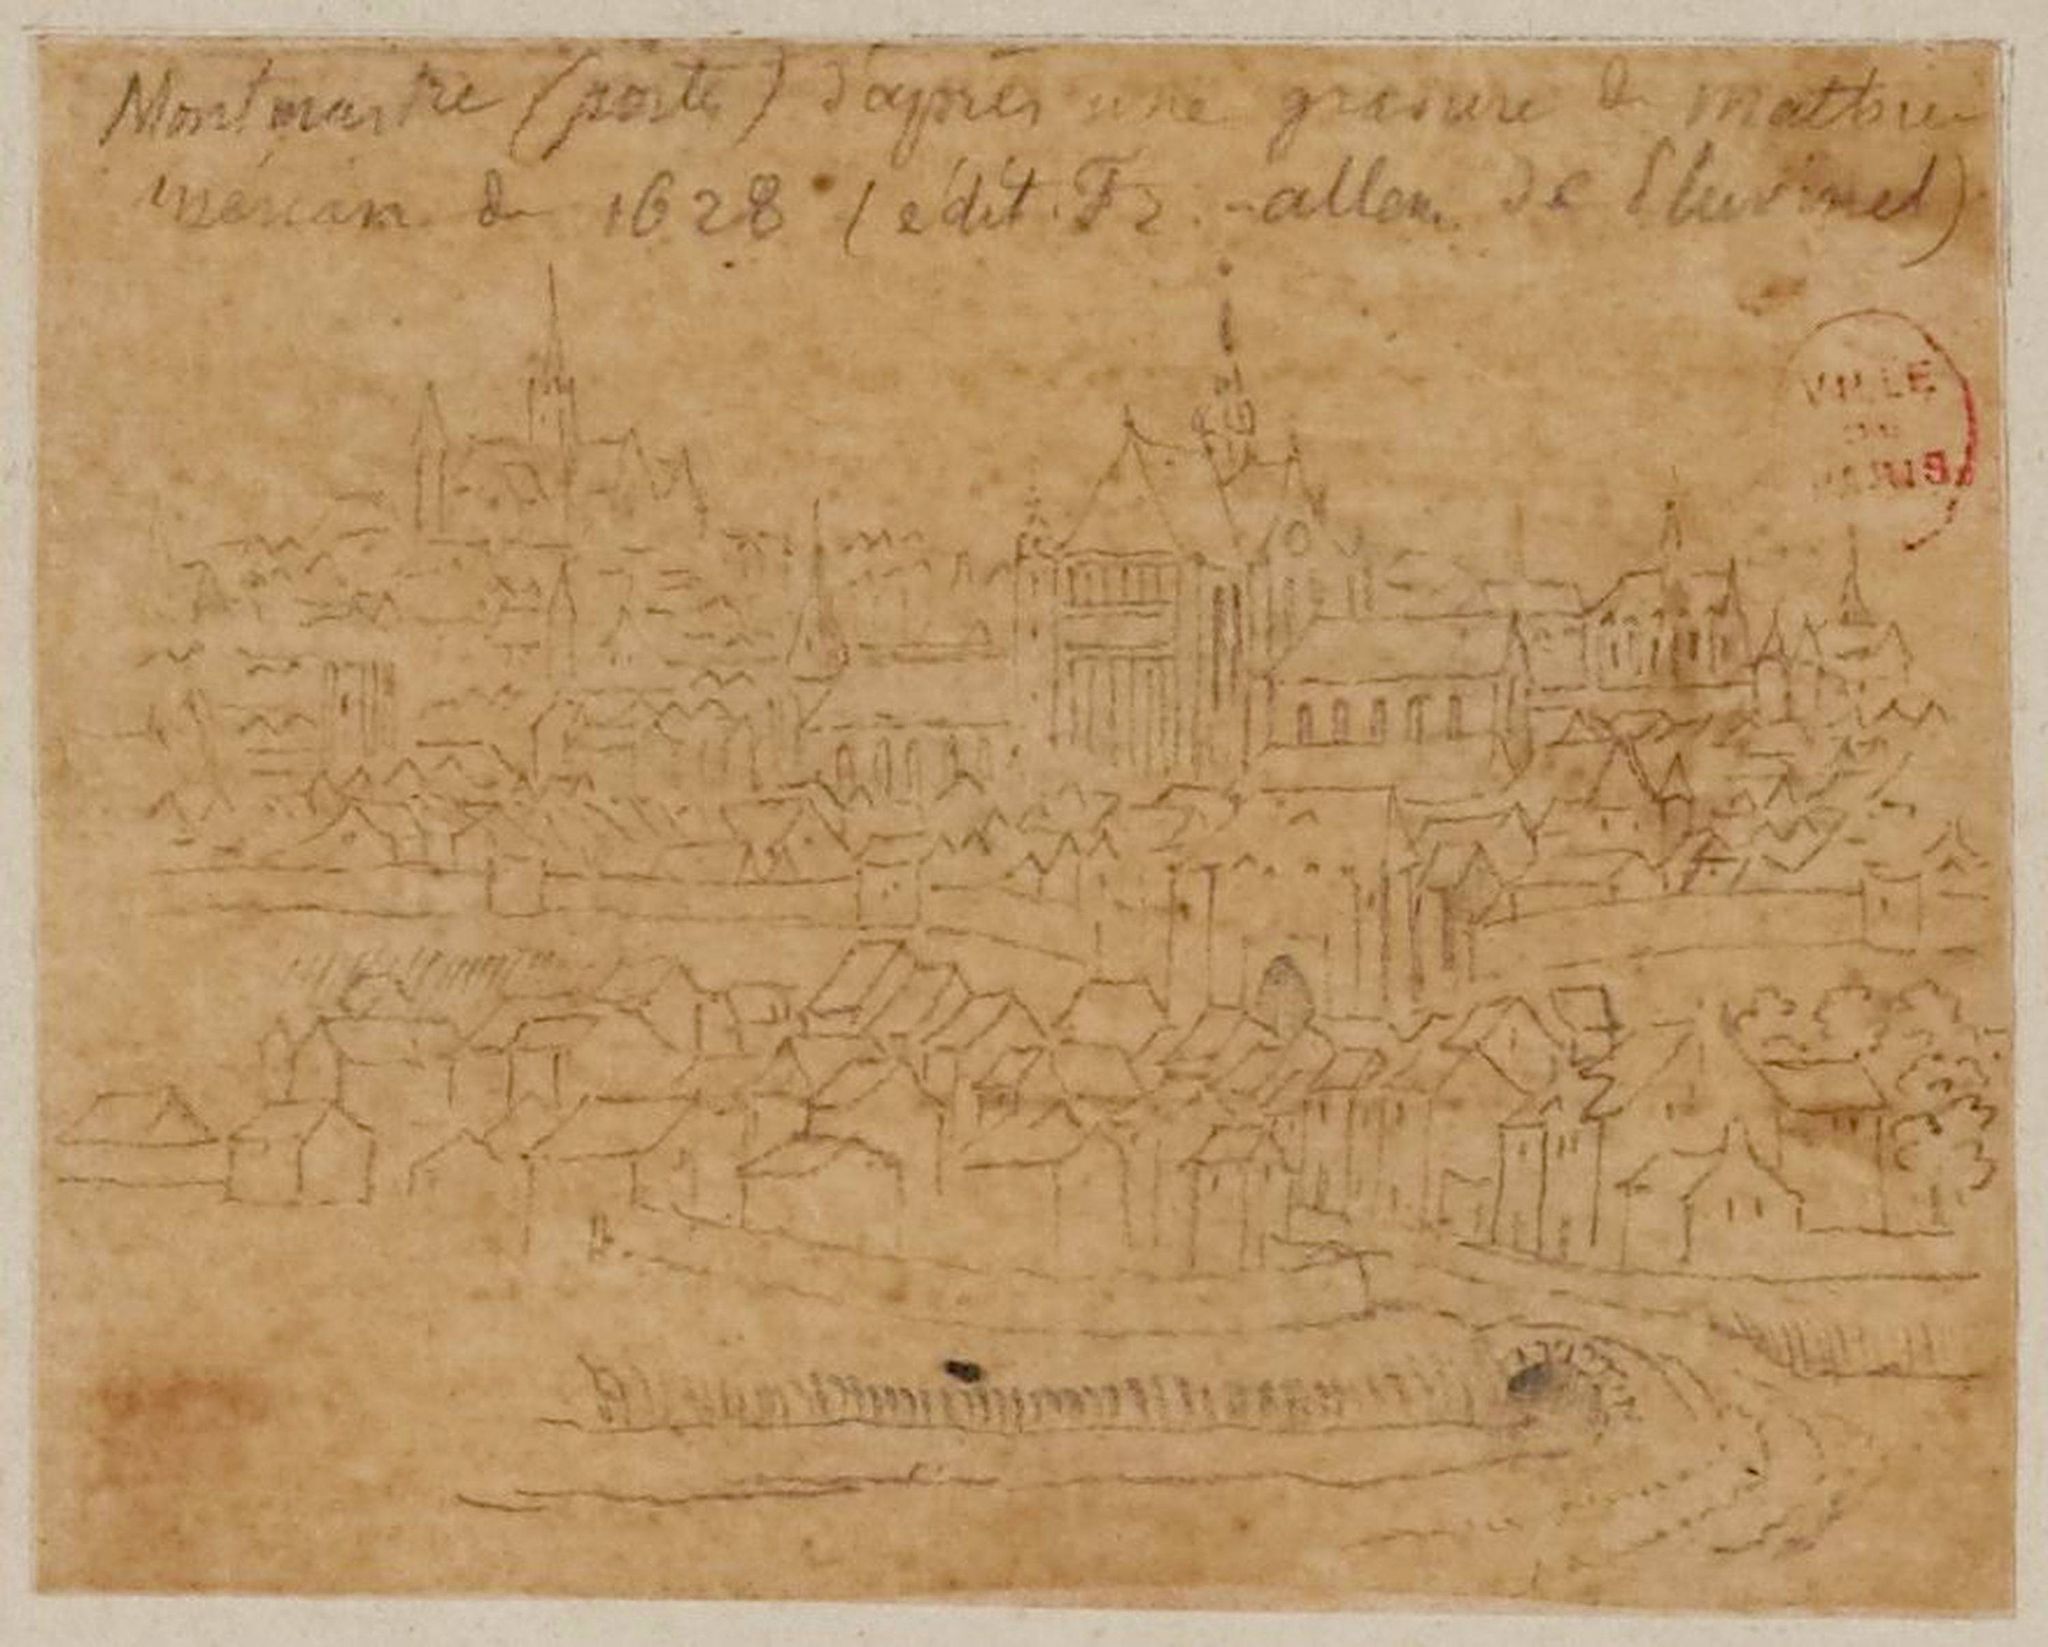 Montmartre (porte) d'après une gravure de Mathieu
Mérian de 1628 (édit. Fr. -allem. de Pluvinel)
VILLE
DE
PARIS